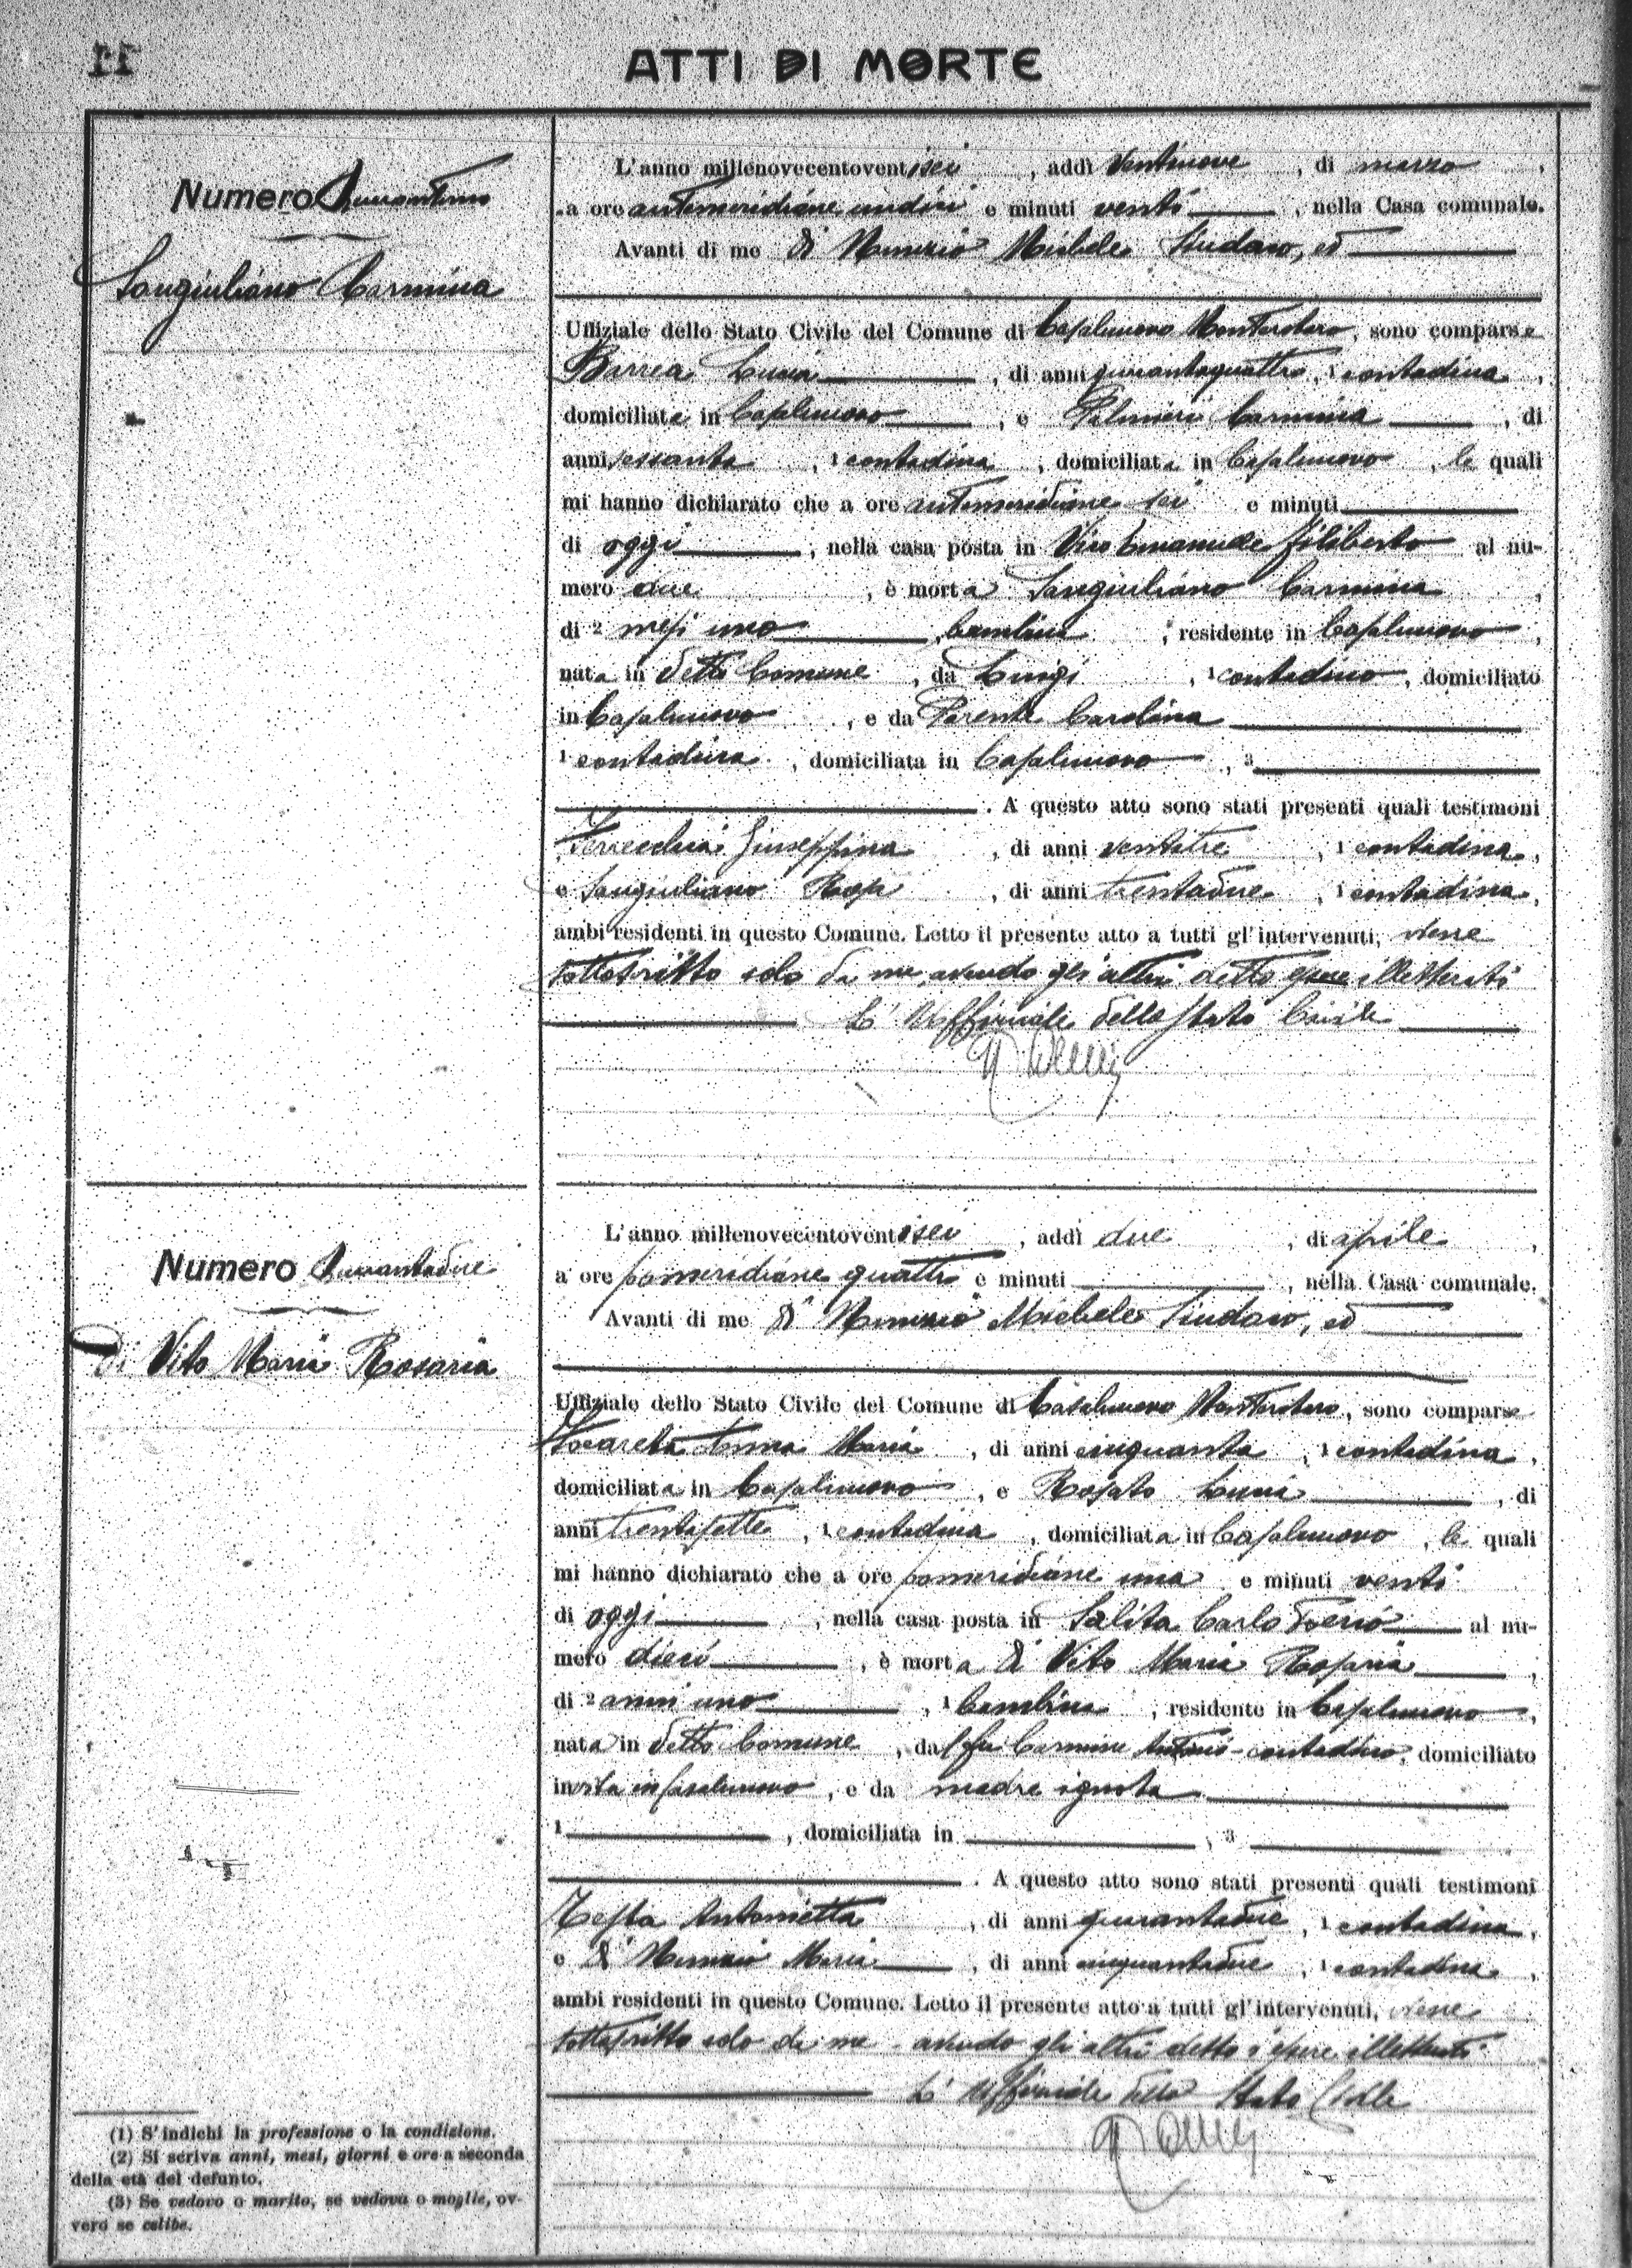 ATTI DI MORTE
Numero Quarantuno
Sangiuliano Carmina
L'anno millenovecentoventisei, addì ventinove, di marzo,
a ore antimeridiane undici e minuti venti, nella Casa comunale.
Avanti di me Di Nunzio Michele Sindaco, ed
Uffiziale dello Stato Civile del Comune di Casalnuovo Monterotaro, sono comparse
Lucia, di anni quarantaquattro, 1 contadina,
domiciliata in Casalnuovo, e Palmieri Carmina, di
anni sessanta, 1 contadina, domiciliata in Casalnuovo, le quali
mi hanno dichiarato che a ore antimeridiane sei e minuti
di oggi, nella casa posta in Vico Emanuele Filiberto al nu-
mero due, è morta Sangiuliano Carmina,
di 2 mesi uno, bambina, residente in Casalnuovo,
nata in detto Comune, da Luigi, 1 contadino, domiciliato
in Casalnuovo, e da Parente Carolina
1 contadina, domiciliata in Casalnuovo, 3
. A questo atto sono stati presenti quali testimoni
Giuseppina, di anni ventitre, 1 contadina,
e Sangiuliano Rosa, di anni trentadue, 1 contadina,
ambi residenti in questo Comune. Letto il presente atto a tutti gl'intervenuti, viene
sottoscritto solo da me, avendo gli altri detto essere illetterati
L'Uffiziale dello Stato Civile
Numero Quarantadue
Di Vito Maria Rosaria
L'anno millenovecentoventisei, addì due, di aprile,
a ore pomeridiane quattro e minuti, nella Casa comunale.
Avanti di me Di Nunzio Michele Sindaco, ed
Uffiziale dello Stato Civile del Comune di Casalnuovo Monterotaro, sono comparse
Anna Maria, di anni cinquanta, 1 contadina,
domiciliata in Casalnuovo, e Rosato Lucia, di
anni trentasette, 1 contadina, domiciliata in Casalnuovo, le quali
mi hanno dichiarato che a ore pomeridiane una e minuti venti
di oggi, nella casa posta in Salita Carlo Poerio al nu-
mero dieci, è morta Di Vito Maria Rosaria,
di 2 anni uno, 1 bambina, residente in Casalnuovo,
nata in detto Comune, da fu Carmine Antonio contadino, domiciliato
in vita in Casalnuovo, e da madre ignota
1, domiciliata in, 3
. A questo atto sono stati presenti quali testimoni
Testa Antonietta, di anni quarantadue, 1 contadina,
e Di Nunzio Maria, di anni cinquantadue, 1 contadina,
ambi residenti in questo Comune. Letto il presente atto a tutti gl'intervenuti, viene
sottoscritto solo da me avendo gli altri detto essere illetterati
L'Uffiziale dello Stato Civile
(1) S'indichi la professione o la condizione.
(2) Si scriva anni, mesi, giorni e ore a seconda
della età del defunto.
(3) Se vedovo o marito, se vedova o moglie, ov-
vero se celibe.